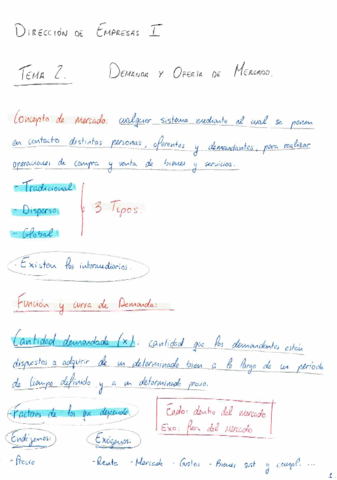 DIRECCIÓN DE EMPRESAS I
TEMA 2. DEMANDA Y OFERTA DE MERCADO.
Concepto de mercado: cualquier sistema mediante el cual se ponen
en contacto distintas personas, oferentes y demandantes, para realizar
operaciones de compra y venta de bienes y servicios.
- Tradicional
- Disperso
- Global
3 Tipos.
- Existen los intermediarios.
Función y curva de Demanda:
Cantidad demandada (x): cantidad que los demandantes están
dispuestos a adquirir de un determinado bien a lo largo de un período
de tiempo definido y a un determinado precio.
Factores de los que depende
Endo: dentro del mercado
Exo: fuera del mercado
Endógenos:
Exógenos:
- Precio
- Renta - Mercado - Gustos - Bienes sust y compl. ...
1.